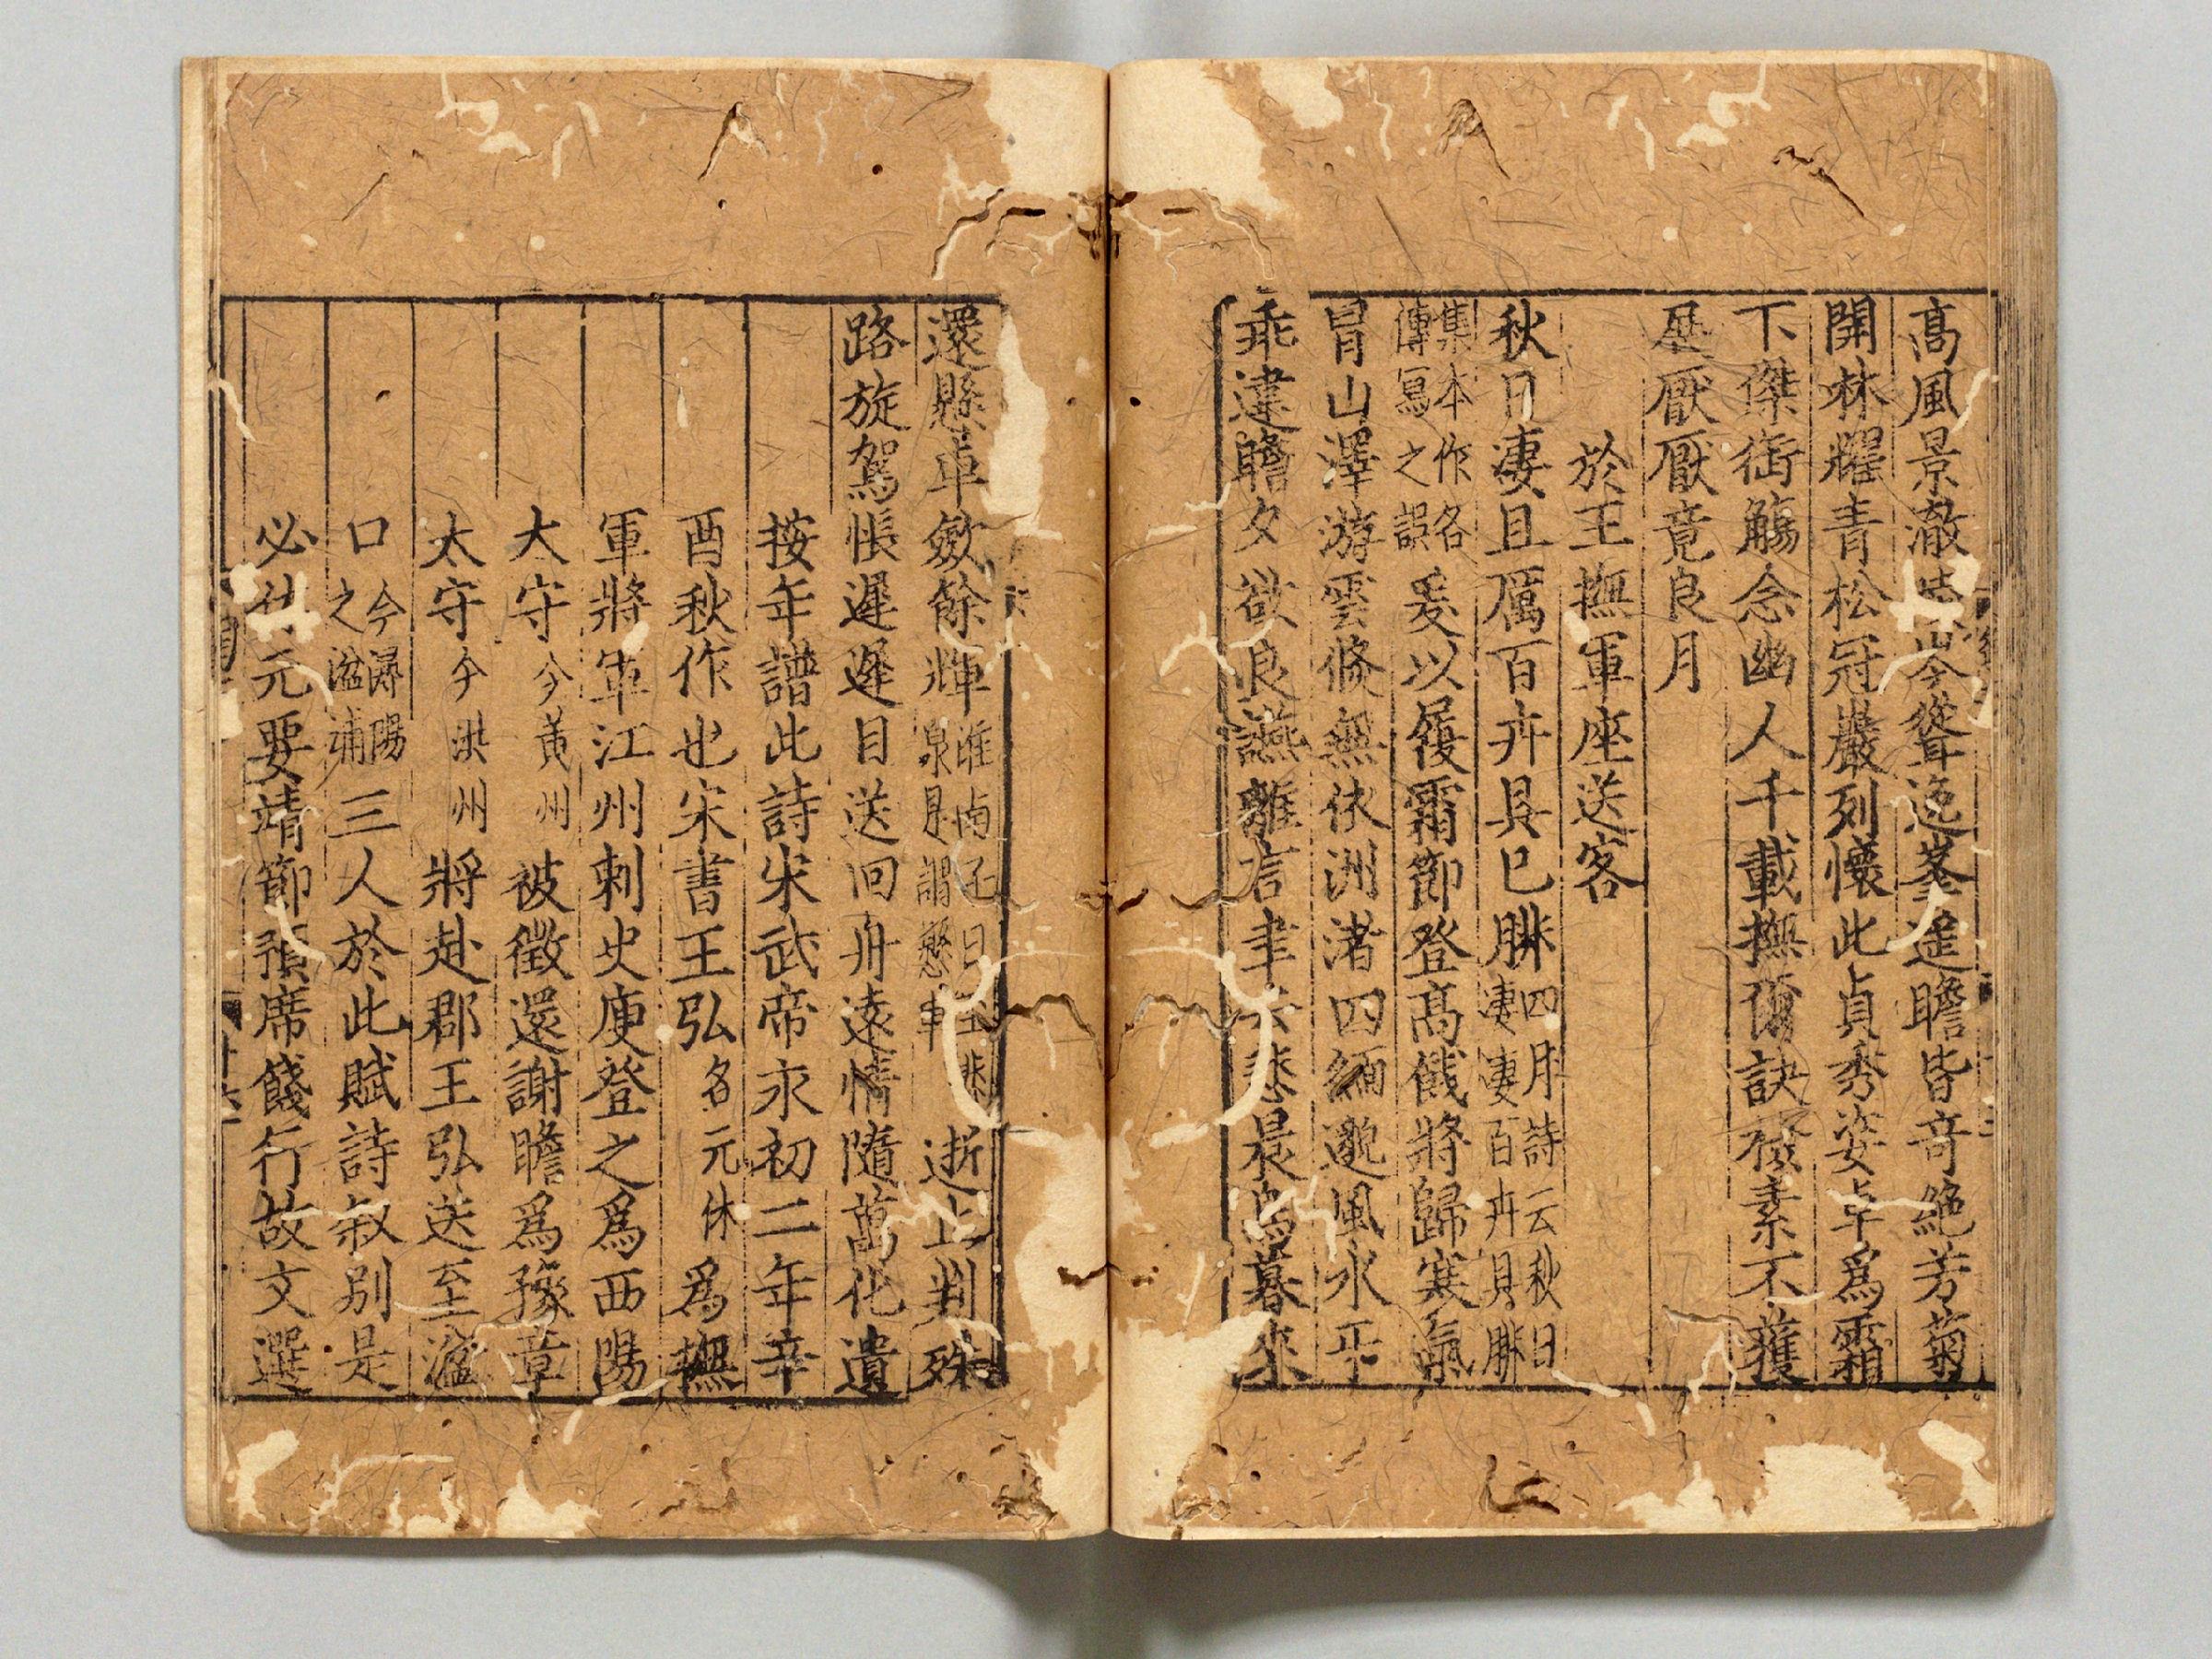 高風景澈
岑聳逸峯遙瞻皆竒絶芳菊
開林耀青松冠巖列懷此貞秀姿卓爲霜
下傑銜觴念幽人千載撫爾訣
素不獲
厭厭竟良月
於王撫軍座送客
秋日淒且厲百卉具已腓四月詩云秋日
淒淒百卉具腓
集本作各
傳寫之誤
爰以履霜節登高餞將歸寒氣
冒山澤游雲倐無依洲渚四緬邈風水
乖違瞻夕欲良讌離言聿
悲晨鳥暮來
還懸車斂餘輝淮南子曰
泉是謂懸車
逝止判殊
路旋駕悵遲遲目送回舟遠情隨萬化遺
按年譜此詩宋武帝永初二年辛
酉秋作也宋書王弘名元休爲撫
軍將軍江州刺史庾登之爲西陽
太守今黃州被徵還謝瞻爲豫章
太守今洪州將赴郡王弘送至湓
口今潯陽
之湓浦
三人於此賦詩叙別是
必
元要靖節預席餞行故文選